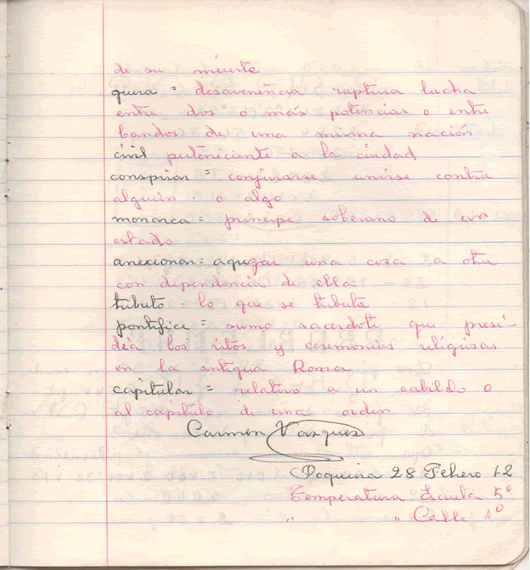 de su muerte
guera = desavenencia ruptura lucha
entre dos o más potencias o entre
bandos de una misma nación
civil perteniciente a la ciudad
conspirar = conjurarse unirse contra
alguien o algo
monarca = principe soberano de un
estado
anexionar = agregar una cosa a otra
con dependencia de ella
tributo = lo que se tributa
pontifice = sumo sacerdote que presi-
dia los ritos y ceremonias religiosas
en la antigua Roma
capitular = relativo a un cabildo o
al capitulo de una orden
Carmen Vasques
28 Febrero 62
Temperatura Escuela 5º
" " Calle 1º